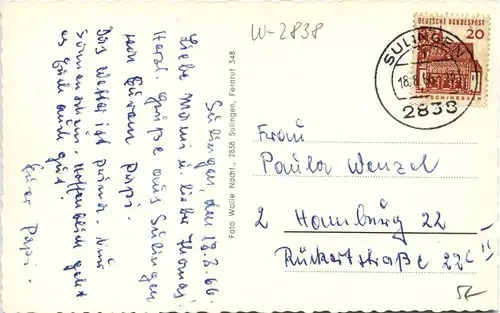 Sulingen, den 18.8.66.
Liebe Mami u. liebe Thomas!
Herzl. Grüße aus Sulingen
von Eurem Papi.
Das Wetter ist prima. Nur
Sonnenschein. Hoffentlich geht
es Euch auch gut!
Euer Papi.
Foto Wolle Nachf., 2838 Sulingen, Fernruf 348
W-2838
DEUTSCHE BUNDESPOST
20
SULINGEN
18.8.66
2838
Frau
Paula Wenzel
2 Hamburg 22
Rückertstraße 22c II